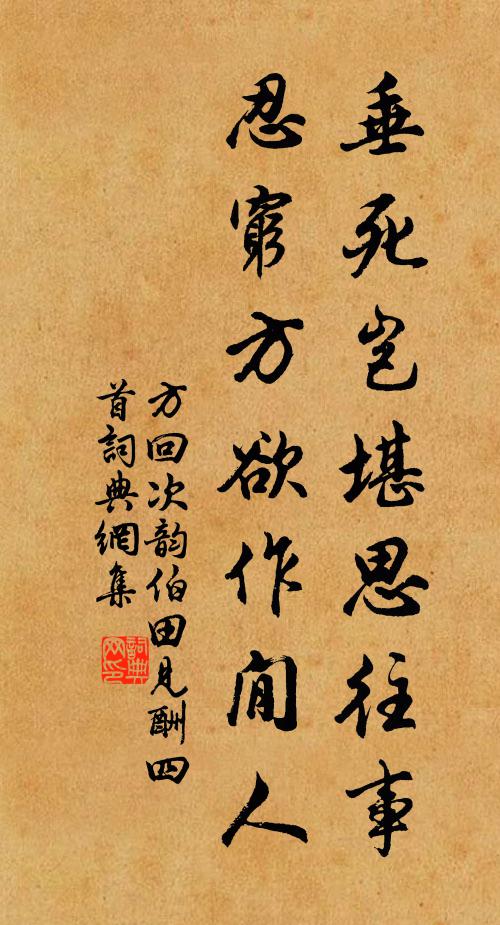 垂死岂堪思往事
忍窮方欲作閒人
方回次韵伯田見酬四
首詞典網集
詞典
网印